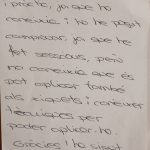 i pràctic, ja que ho
coneixia i ho he pogut
comprovar, ja que he
fet sessions, però
no coneixia que es
pot aplicar també
als xiquets i conèixer
tècniques per
poder aplicar-ho.
Gràcies! ha sigut